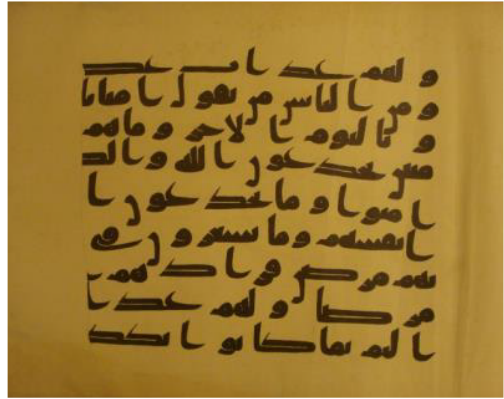 و لهم عذاب عظ
و من الناس من يقول امنا با
و باليوم الاخر و ما هم
منين يخدعون الله و الذ
امنوا و ما يخدعون ا
انفسهم و ما يشعرون في
بهم مرض فزادهم ا
مرضا و لهم عذا
اليم بما كانوا يكذ